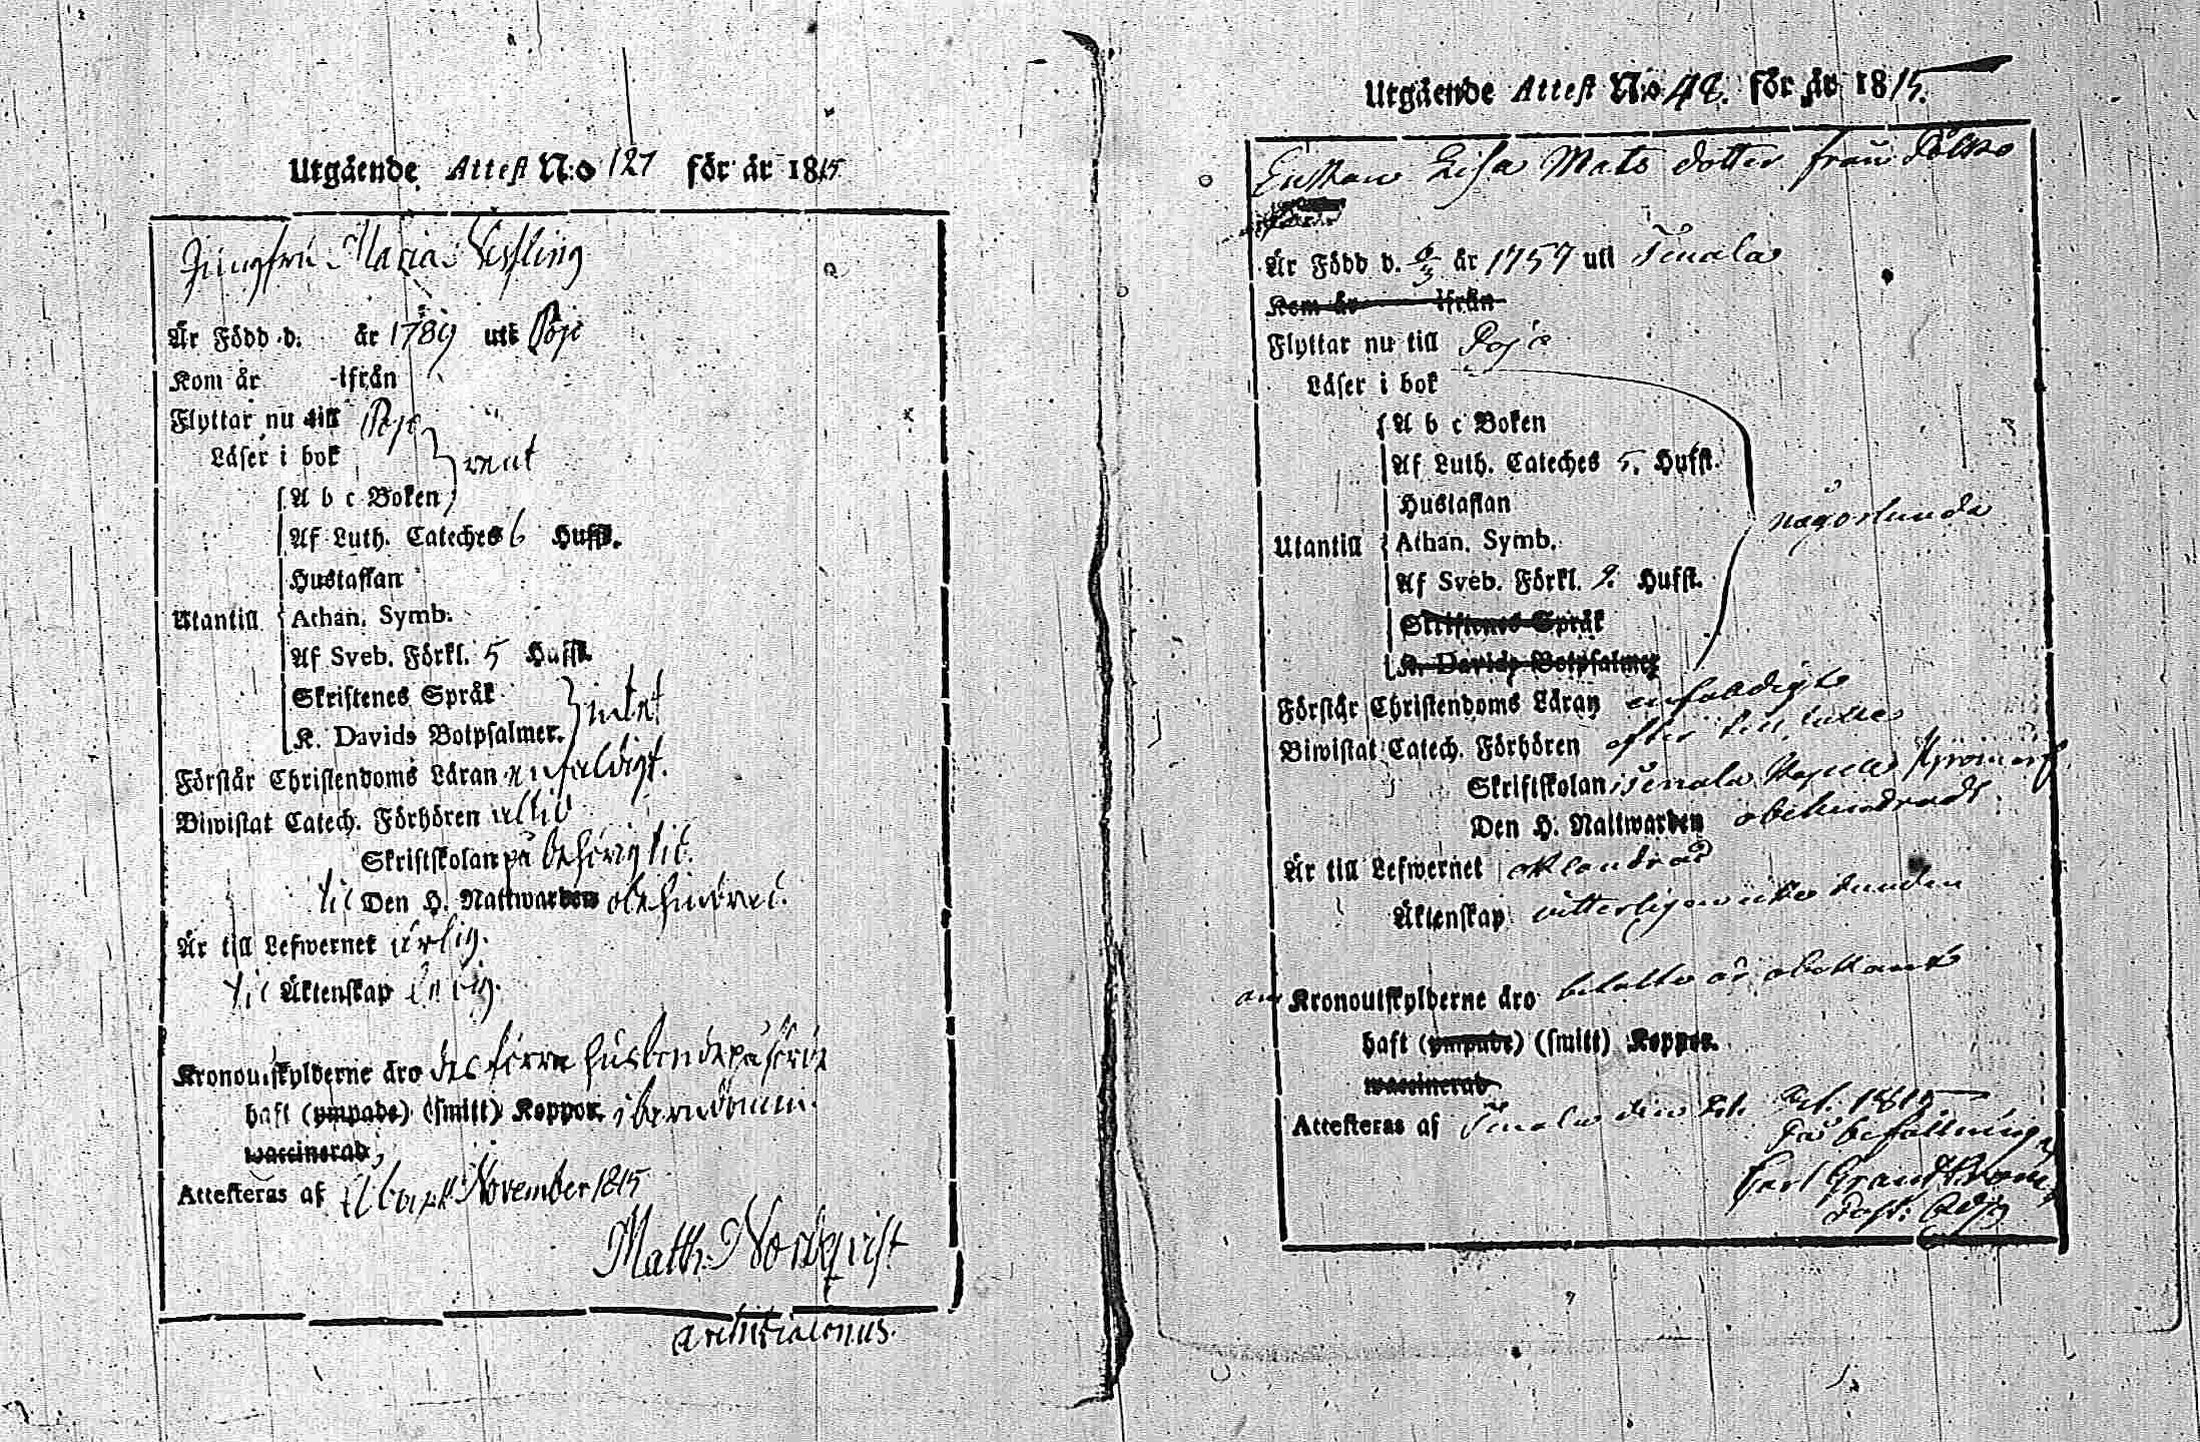 Utgående Attest N:o 127 för år 1815
Jungfru Maria
Är Född d. år 1789 uti Pojo
Kom år ifrån
Flyttar nu till Pojo
Läser i bok rent
A b c Boken
Af Luth. Cateches 6 Hufst.
Hustaflan
Utantill Athan. Symb.
Af Sveb. Förkl. 5 Hufst.
Skriftenes Språk intet
K. Davids Botpsalmer.
Förstår Christendoms Läran enfaldigt.
Biwistat Catech. Förhören
Skriftskolan på behörig tid.
til Den H. Nattwarden obehindrad.
Är till Lefwernet ärlig.
til Äktenskap ledig.
Kronoutskylderne äro
haft (ympade) (smitt) Koppor. i barndomen.
waccinerad
Attesteras af November 1815
Matth. Nordqvist
Utgående Attest N:o 48. för år 1815.
Enkan Lisa Mats dotter från
Är Född d. 6/3 år 1757 uti Tenala
Kom år ifrån
Flyttar nu till Pojo
Läser i bok
A b c Boken
Af Luth. Cateches 5. Hufst.
Hustaflan
någorlunda
Utantill Athan. Symb.
Af Sveb. Förkl. 2. Hufst.
Skriftenes Språk
K. Davids Botpsalmer
Förstår Christendoms Läran enfaldigt
Biwistat Catech. Förhören
Skriftskolan i Tenala
Den H. Nattwarden obehindradt
Är till Lefwernet oklandrad
Äktenskap
om Kronoutskylderne äro betalte är obekant
haft (ympade) (smitt) Koppor.
waccinerad
Attesteras af Tenala den 1815
På befallning
Carl
Past. Adj.